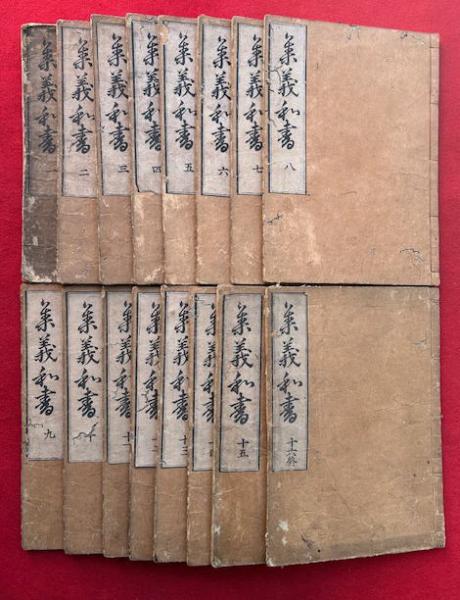 集義和書 一
集義和書 二
集義和書 三
集義和書 四
集義和書 五
集義和書 六
集義和書 七
集義和書 八
集義和書 九
集義和書 十
集義和書 十
集義和書
集義和書 十三
集義和書
集義和書 十五
集義和書 十六終